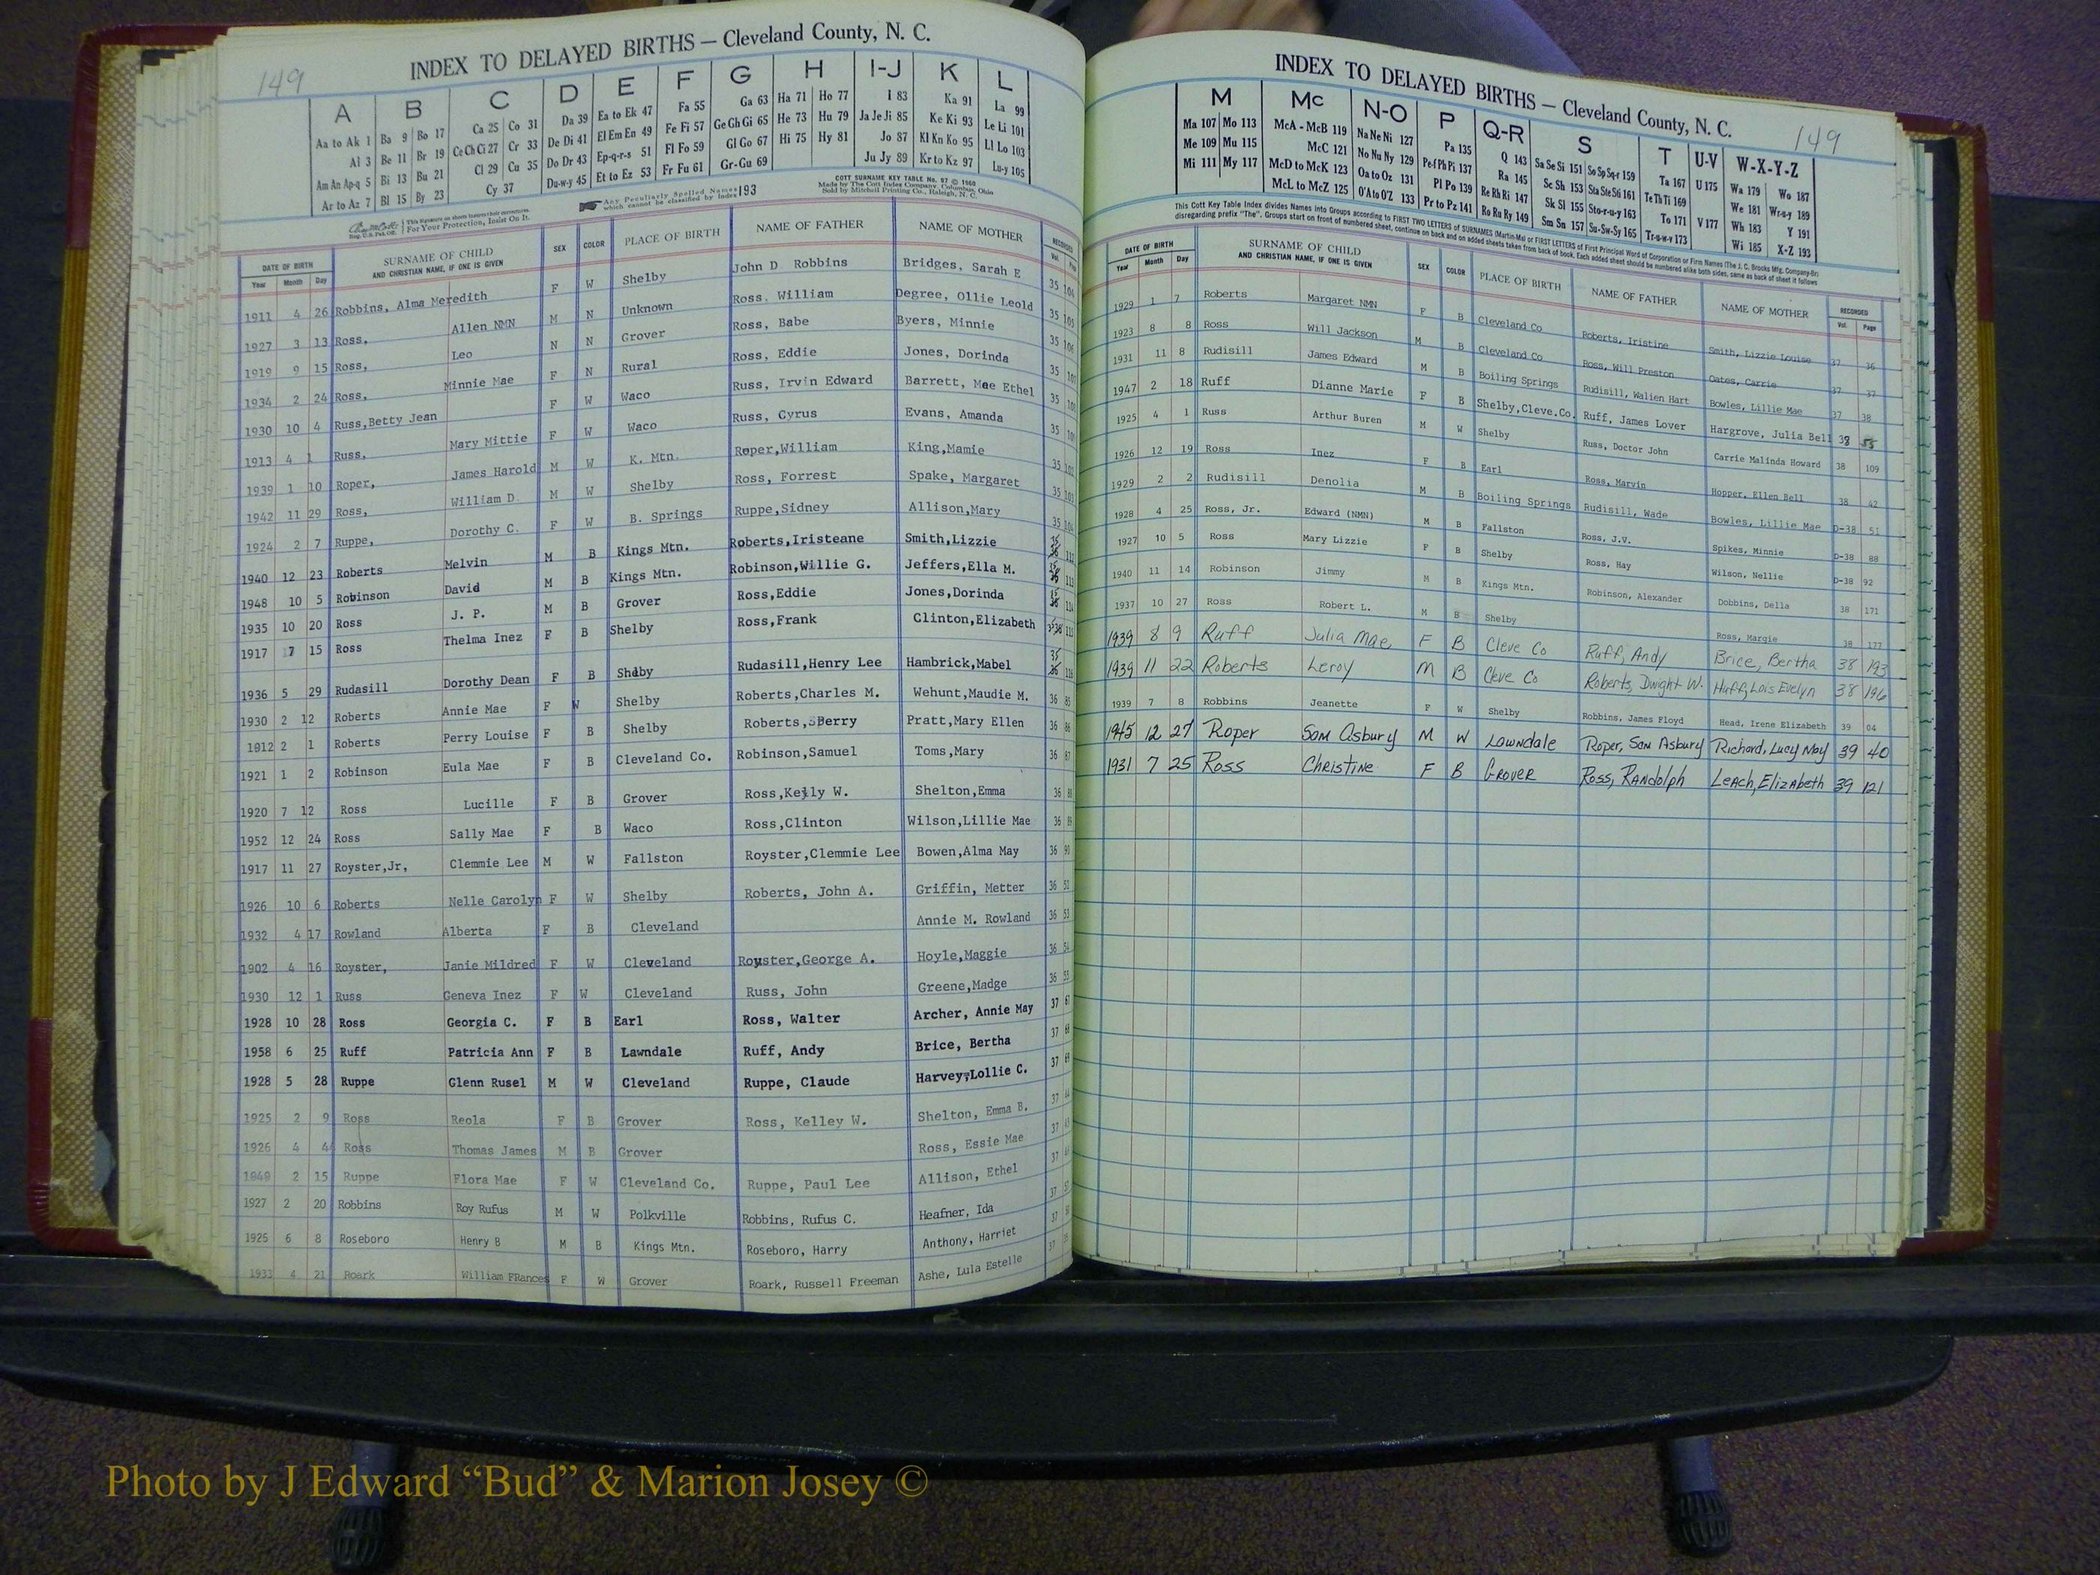 149
INDEX TO DELAYED BIRTHS — Cleveland County, N. C.
A B C D E F G H I-J K L
Aa to Ak 1 Ba 9 Bo 17 Ca 25 Co 31 Da 39 Ea to Ek 47 Fa 55 Ga 63 Ha 71 Ho 77 I 83 Ka 91 La 99
Al 3 Be 11 Br 19 Ce Ch Ci 27 Cr 33 De Di 41 El Em En 49 Fe Fi 57 Ge Gh Gi 65 He 73 Hu 79 Ja Je Ji 85 Ke Ki 93 Le Li 101
Am An Ap-q 5 Bi 13 Bu 21 Cl 29 Cu 35 Do Dr 43 Ep-q-r-s 51 Fl Fo 59 Gl Go 67 Hi 75 Hy 81 Jo 87 Kl Kn Ko 95 Ll Lo 103
Ar to Az 7 Bl 15 By 23 Cy 37 Du-w-y 45 Et to Ez 53 Fr Fu 61 Gr-Gu 69 Ju Jy 89 Kr to Kz 97 Lu-y 105
For Your Protection, Insist On It.
Any Peculiarly Spelled Names which cannot be classified by Index 193
COTT SURNAME KEY TABLE No. 97 © 1960
Made by The Cott Index Company, Columbus, Ohio
Sold by Mitchell Printing Co., Raleigh, N. C.
DATE OF BIRTH SURNAME OF CHILD SEX COLOR PLACE OF BIRTH NAME OF FATHER NAME OF MOTHER RECORDED
Year Month Day AND CHRISTIAN NAME, IF ONE IS GIVEN Vol.
1911 4 26 Robbins, Alma Meredith F W Shelby John D Robbins Bridges, Sarah E 35 104
1927 3 13 Ross, Allen NMN M N Unknown Ross. William Degree, Ollie Leold 35 105
1919 9 15 Ross, Leo N N Grover Ross, Babe Byers, Minnie 35 106
1934 2 24 Ross, Minnie Mae F N Rural Ross, Eddie Jones, Dorinda 35
1930 10 4 Russ,Betty Jean F W Waco Russ, Irvin Edward Barrett, Mae Ethel 35
1913 4 1 Russ, Mary Mittie F W Waco Russ, Cyrus Evans, Amanda 35
1939 1 10 Roper, James Harold M W K. Mtn. Roper,William King,Mamie 35 102
1942 11 29 Ross, William D. M W Shelby Ross, Forrest Spake, Margaret 35 103
1924 2 7 Ruppe, Dorothy C. F W B. Springs Ruppe,Sidney Allison,Mary 35 104
1940 12 23 Roberts Melvin M B Kings Mtn. Roberts,Iristeane Smith,Lizzie 112
1948 10 5 Robinson David M B Kings Mtn. Robinson,Willie G. Jeffers,Ella M. 113
1935 10 20 Ross J. P. M B Grover Ross,Eddie Jones,Dorinda 114
1917 7 15 Ross Thelma Inez F B Shelby Ross,Frank Clinton,Elizabeth
1936 5 29 Rudasill Dorothy Dean F B Shelby Rudasill,Henry Lee Hambrick,Mabel
1930 2 12 Roberts Annie Mae F W Shelby Roberts,Charles M. Wehunt,Maudie M. 36 85
1912 2 1 Roberts Perry Louise F B Shelby Roberts,Berry Pratt,Mary Ellen 36 86
1921 1 2 Robinson Eula Mae F B Cleveland Co. Robinson,Samuel Toms,Mary 36 87
1920 7 12 Ross Lucille F B Grover Ross,Kelly W. Shelton,Emma 36 88
1952 12 24 Ross Sally Mae F B Waco Ross,Clinton Wilson,Lillie Mae 36 89
1917 11 27 Royster,Jr, Clemmie Lee M W Fallston Royster,Clemmie Lee Bowen,Alma May 36 90
1926 10 6 Roberts Nelle Carolyn F W Shelby Roberts, John A. Griffin, Metter 36
1932 4 17 Rowland Alberta F B Cleveland Annie M. Rowland 36 53
1902 4 16 Royster, Janie Mildred F W Cleveland Royster,George A. Hoyle,Maggie 36 54
1930 12 1 Russ Geneva Inez F W Cleveland Russ, John Greene,Madge 36 55
1928 10 28 Ross Georgia C. F B Earl Ross, Walter Archer, Annie May 37 67
1958 6 25 Ruff Patricia Ann F B Lawndale Ruff, Andy Brice, Bertha 37 68
1928 5 28 Ruppe Glenn Rusel M W Cleveland Ruppe, Claude Harvey,Lollie C. 37 69
1925 2 9 Ross Reola F B Grover Ross, Kelley W. Shelton, Emma B. 37
1926 4 4 Ross Thomas James M B Grover Ross, Essie Mae 37
2 15 Ruppe Flora Mae F W Cleveland Co. Ruppe, Paul Lee Allison, Ethel 37
1927 2 20 Robbins Roy Rufus M W Polkville Robbins, Rufus C. Heafner, Ida 37
1925 6 8 Roseboro Henry B M B Kings Mtn. Roseboro, Harry Anthony, Harriet 37
1933 4 21 Roark William FRances F W Grover Roark, Russell Freeman Ashe, Lula Estelle 37
INDEX TO DELAYED BIRTHS — Cleveland County, N. C.
149
M Mc N-O P Q-R S T U-V W-X-Y-Z
Ma 107 Mo 113 McA - McB 119 Na Ne Ni 127 Pa 135 Q 143 Sa Se Si 151 So Sp Sq-r 159 Ta 167 U 175 Wa 179 Wo 187
Me 109 Mu 115 McC 121 No Nu Ny 129 Pe-f Ph Pi 137 Ra 145 Sc Sh 153 Sta Ste Sti 161 Te Th Ti 169 We 181 Wr-u-y 189
Mi 111 My 117 McD to McK 123 Oa to Oz 131 Pl Po 139 Re Rh Ri 147 Sk Sl 155 Sto-r-u-y 163 To 171 V 177 Wh 183 Y 191
McL to McZ 125 O'A to O'Z 133 Pr to Pz 141 Ro Ru Ry 149 Sm Sn 157 Su-Sw-Sy 165 Tr-u-w-y 173 Wi 185 X-Z 193
This Cott Key Table Index divides Names into Groups according to FIRST TWO LETTERS of SURNAMES (Martin-Ma) or FIRST LETTERS of First Principal Word of Corporation or Firm Names (The J. C. Brooks Mfg. Company-Br)
disregarding prefix "The". Groups start on front of numbered sheet, continue on back and on added sheets taken from back of book. Each added sheet should be numbered alike both sides, same as back of sheet it follows
DATE OF BIRTH SURNAME OF CHILD SEX COLOR PLACE OF BIRTH NAME OF FATHER NAME OF MOTHER RECORDED
Year Month Day AND CHRISTIAN NAME, IF ONE IS GIVEN Vol. Page
1929 1 7 Roberts Margaret NMN F B Cleveland Co Roberts, Iristine Smith, Lizzie Louise 37 36
1923 8 8 Ross Will Jackson M B Cleveland Co Ross, Will Preston Oates, Carrie 37 37
1931 11 8 Rudisill James Edward M B Boiling Springs Rudisill, Walien Hart Bowles, Lillie Mae 37 38
1947 2 18 Ruff Dianne Marie F B Shelby,Cleve.Co. Ruff, James Lover Hargrove, Julia Bell 38 55
1925 4 1 Russ Arthur Buren M W Shelby Russ, Doctor John Carrie Malinda Howard 38 109
1926 12 19 Ross Inez F B Earl Ross, Marvin Hopper, Ellen Bell 38 42
1929 2 2 Rudisill Denolia M B Boiling Springs Rudisill, Wade Bowles, Lillie Mae D-38 51
1928 4 25 Ross, Jr. Edward (NMN) M B Fallston Ross, J.V. Spikes, Minnie D-38 88
1927 10 5 Ross Mary Lizzie F B Shelby Ross, Hay Wilson, Nellie D-38 92
1940 11 14 Robinson Jimmy M B Kings Mtn. Robinson, Alexander Dobbins, Della 38 171
1937 10 27 Ross Robert L. M B Shelby Ross, Margie 38 177
1939 8 9 Ruff Julia Mae F B Cleve Co Ruff, Andy Brice, Bertha 38 193
1939 11 22 Roberts Leroy M B Cleve Co Roberts, Dwight W. Huff, Lois Evelyn 38 196
1939 7 8 Robbins Jeanette F W Shelby Robbins, James Floyd Head, Irene Elizabeth 39 04
1945 12 27 Roper Sam Asbury M W Lawndale Roper, Sam Asbury Richard, Lucy May 39 40
1931 7 25 Ross Christine F B Grover Ross, Randolph Leach, Elizabeth 39 121
Photo by J Edward “Bud” & Marion Josey ©